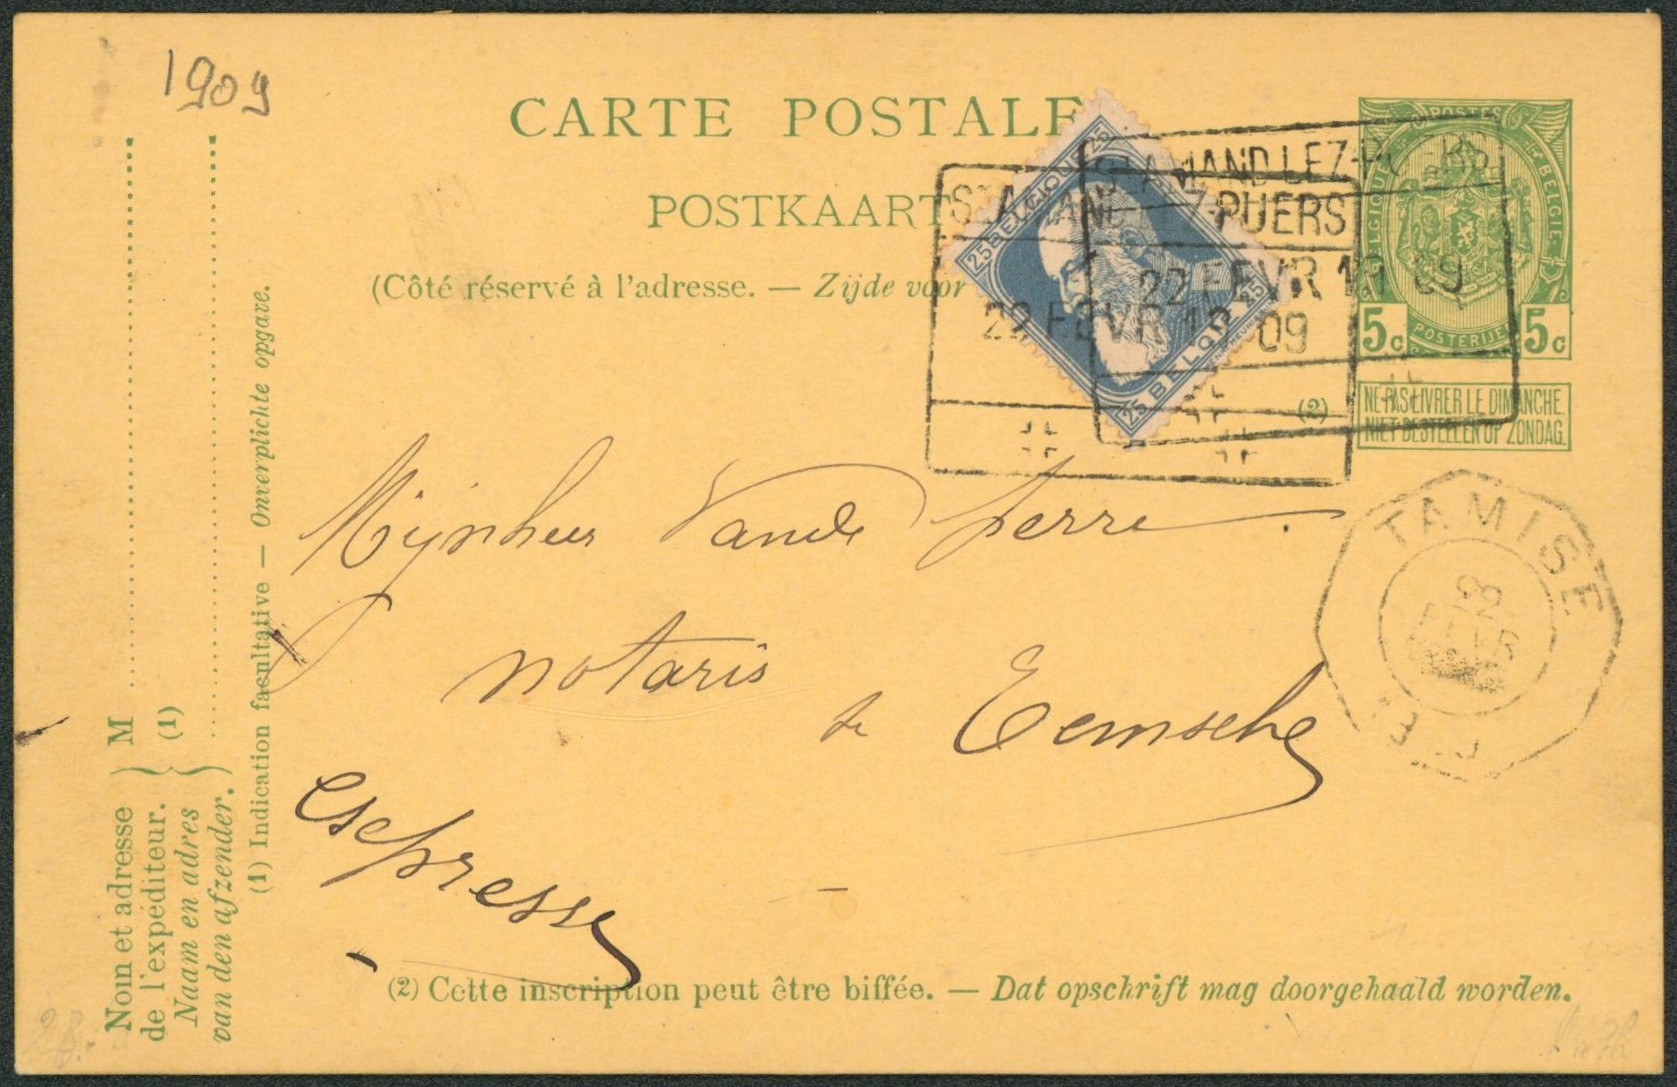 1909
CARTE POSTALE
POSTKAART
(Côté réservé à l'adresse. — Zijde voor
POSTES
BELGIQUE
BELGIË
POSTERIJEN
5c 5c
NE PAS LIVRER LE DIMANCHE.
NIET BESTELLEN OP ZONDAG.
(2)
25 BELGIQUE 25
25 BELGIQUE 25
ST AMAND LEZ-PUERS
22 FEVR 12 09
ST AMAND LEZ-PUERS
22 FEVR 12 09
TAMISE
22
FEVR
Mijnheer Vande Perre
notaris
te Temsche
expresse
Nom et adresse
de l'expéditeur.
Naam en adres
van den afzender.
M
(1)
(1) Indication facultative — Onverplichte opgave.
(2) Cette inscription peut être biffée. — Dat opschrift mag doorgehaald worden.